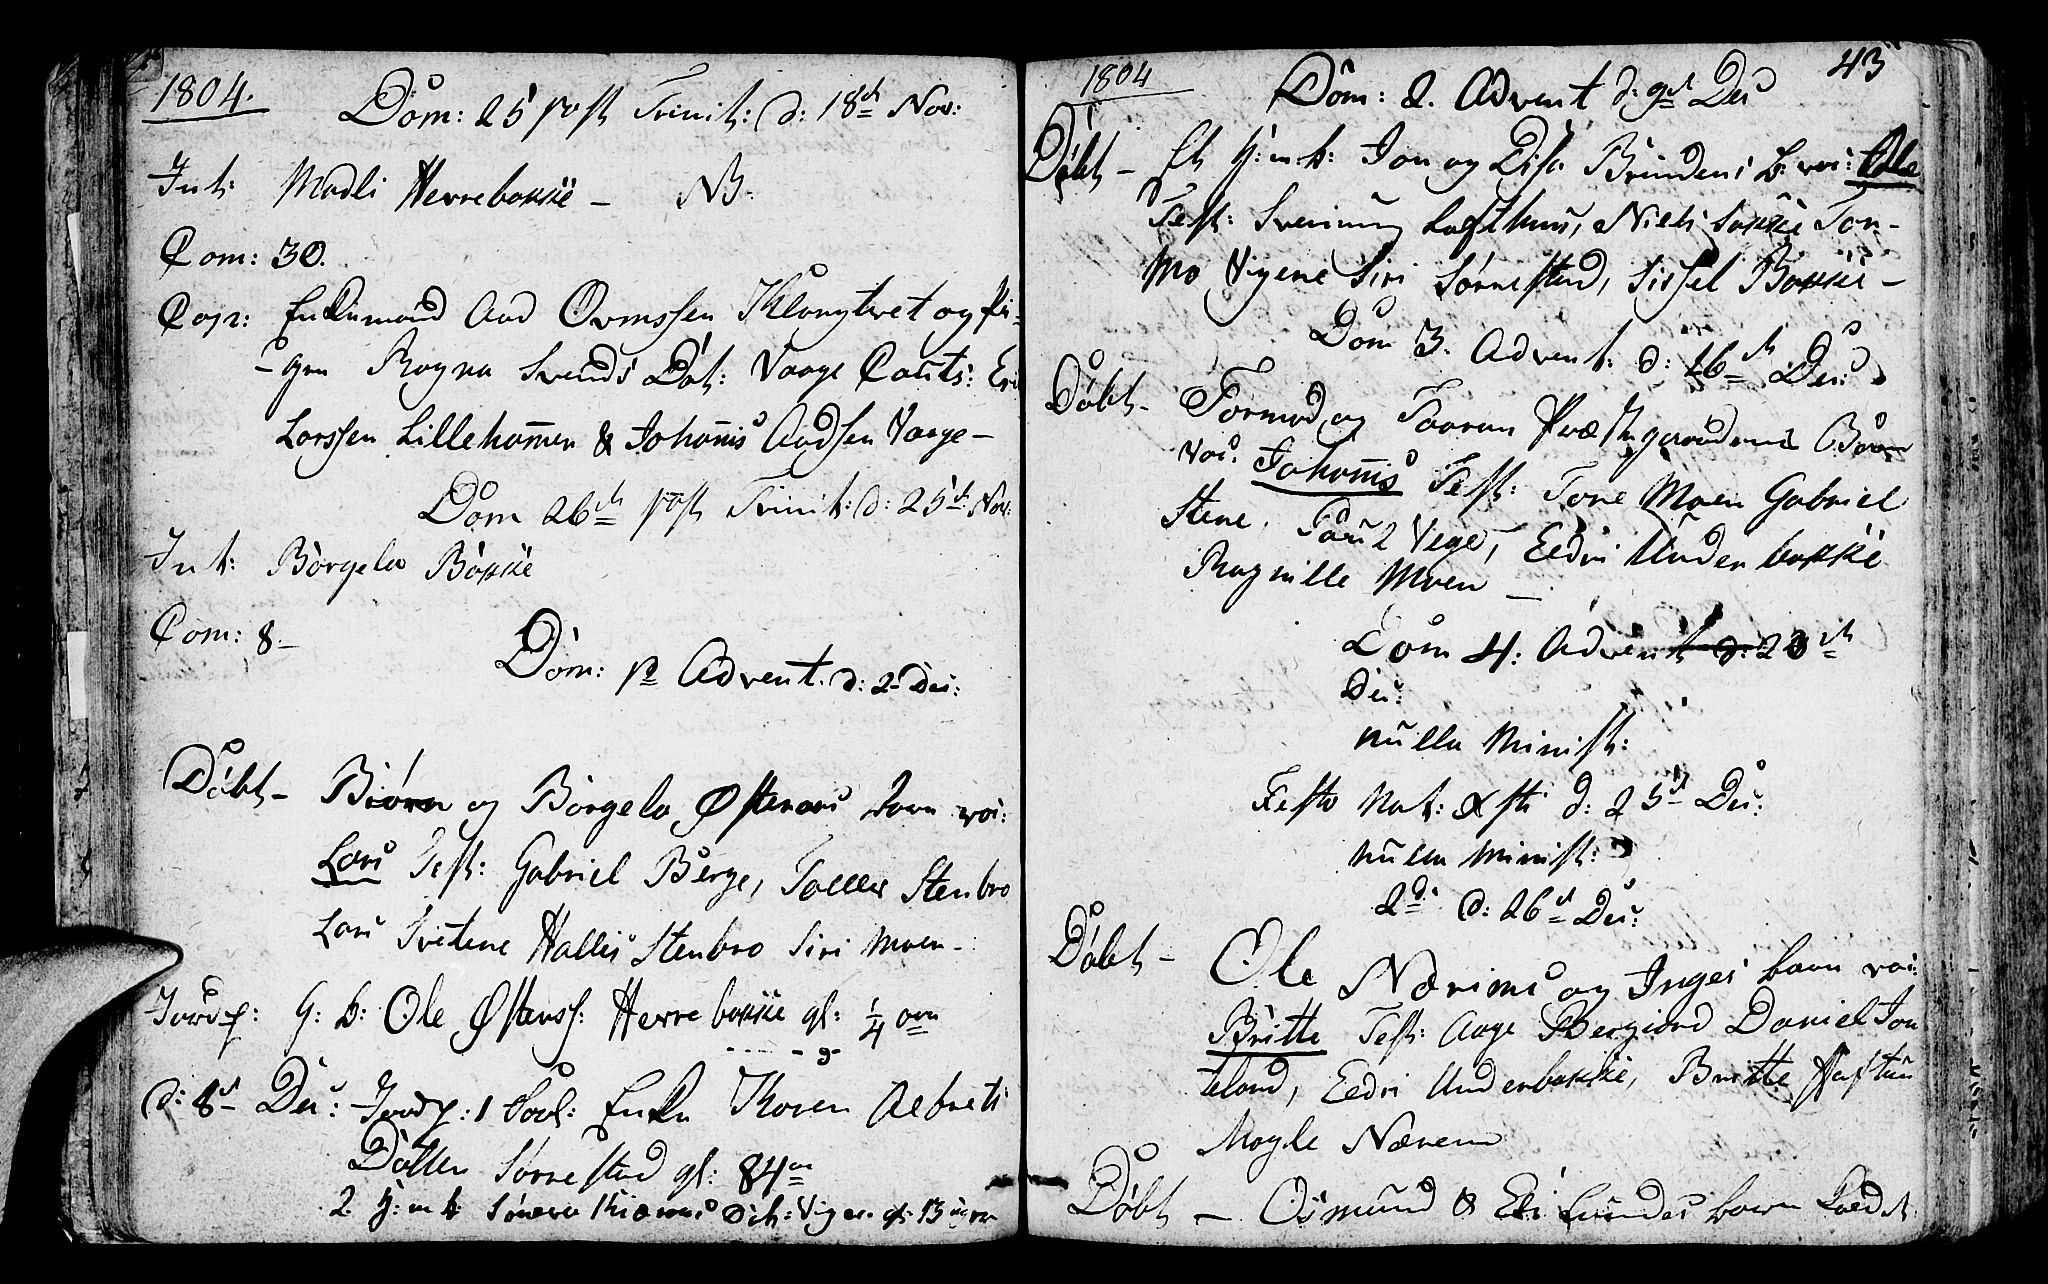 1804.
Dom: 25 post Trinit: d: 18de Nov:
Int: Madli Herrebakke – NB.
Com: 30.
Cop: Enkemand Aad Ormssen Klongteret og Pi-
-gen Ragna Svends Dat: Vaage Cauts: Eri
Larssen Lillehommen & Johannis Aadsen Vaage –
Dom 26de post Trinit: d: 25de Nov:
Int: Børgela Bakke
Com: 8 –
Dom: 1ma Advent. d: 2 Des:
Døbt – Biørn og Børgela Østenaas barn var:
Lars Test: Gabriel Berge, Tallev Stenbro
Lars Tvetene Halleis Stenbro Siri Moen –
Jordf: G: b: Ole Østenss: Herrebakke gl: 1/4 aar
d: 8de Des: Jordf: 1 Enke Karen Albrets
Datter Sørrestad gl: 84 aar
2. H: m b: gl: 13 uger
1804
43
Dom: 2. Advent d: 9de Des
Døbt – Et H: m b: Jon og Brindens b: var: Ole
Test: Sveinung Lofthuus, Niels Bakke Tor-
mo Vigene Siri Sørrestad, Sissel Bakke –
Dom 3. Advent: d: 16de Des:
Døbt – Tormod og Taaran Præstegaardens Barn
var. Johannis Test: Tore Moen Gabriel
Stene, Vege, Eedri Underbakke
Ragnille Moen –
Dom 4: Advent d: 23de
Des:
nulla Minist:
Festo Nat: Xsti d: 25de Des:
nulla Minist:
2d: d: 26de Des:
Døbt – Ole Nærims og Inges barn var:
Britte Test: Aage Bergiord Daniel Jon
teland, Eedri Underbakke, Britte Haftun
Magle Næreim
Døbt – Osmund & Eli barn